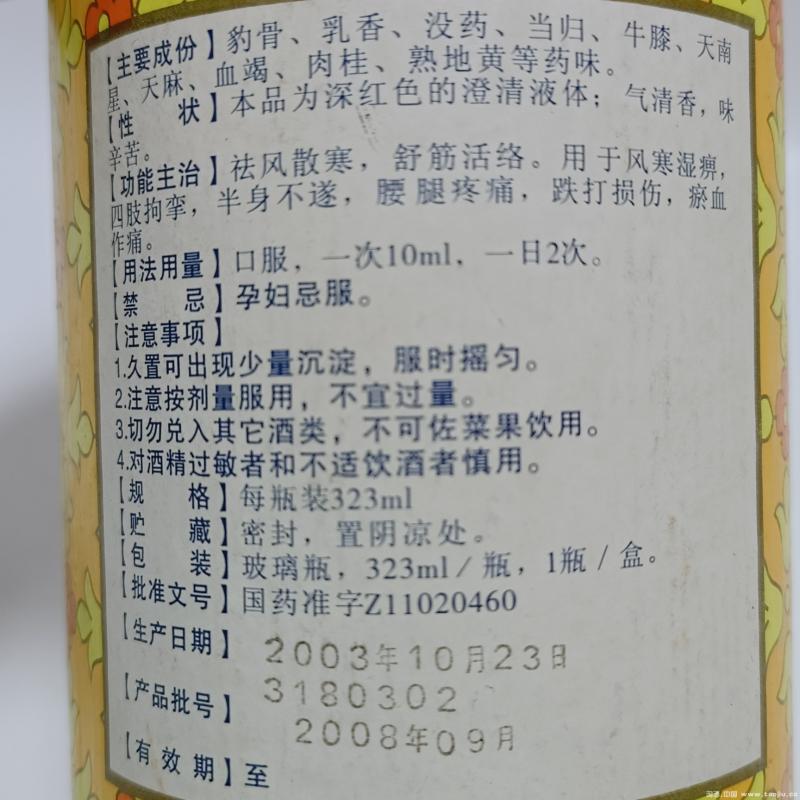 【主要成份】豹骨、乳香、没药、当归、牛膝、天南
星、天麻、血竭、肉桂、熟地黄等药味。
【性 状】本品为深红色的澄清液体；气清香，味
辛苦。
【功能主治】祛风散寒，舒筋活络。用于风寒湿痹，
四肢拘挛，半身不遂，腰腿疼痛，跌打损伤，瘀血
作痛。
【用法用量】口服，一次10ml，一日2次。
【禁 忌】孕妇忌服。
【注意事项】
1.久置可出现少量沉淀，服时摇匀。
2.注意按剂量服用，不宜过量。
3.切勿兑入其它酒类，不可佐菜果饮用。
4.对酒精过敏者和不适饮酒者慎用。
【规 格】每瓶装323ml
【贮 藏】密封，置阴凉处。
【包 装】玻璃瓶，323ml/瓶，1瓶/盒。
【批准文号】国药准字Z11020460
【生产日期】2003年10月23日
【产品批号】3180302
2008年09月
【有效期】至